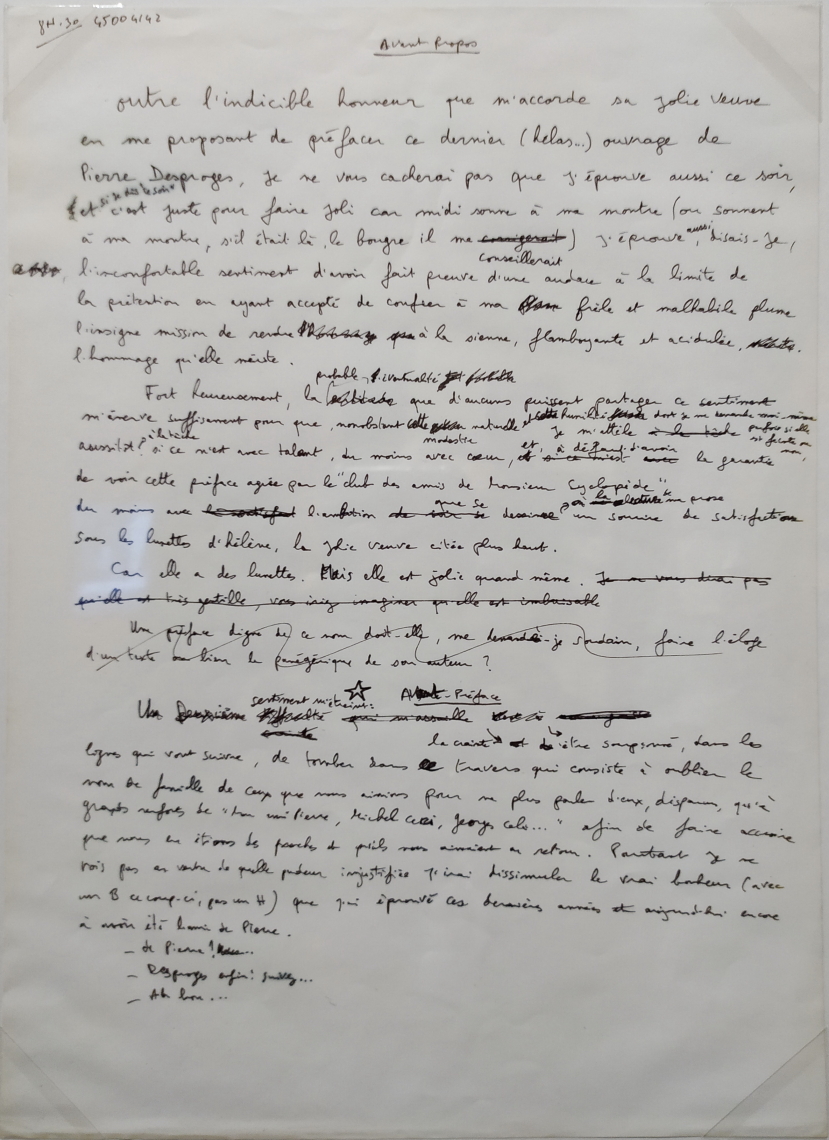 8H.30 45004142
Avant Propos
outre l'indicible honneur que m'accorde sa jolie veuve
en me proposant de préfacer ce dernier (hélas...) ouvrage de
Pierre Desproges, je ne vous cacherai pas que j'éprouve aussi ce soir,
si je dis le soir
et c'est juste pour faire joli car midi sonne à ma montre (ou sonnent
à ma montre, s'il était là, le bougre il me corrigerait) j'éprouve, aussi, disais-je,
conseillerait
l'inconfortable sentiment d'avoir fait preuve d'une audace à la limite de
la prétention en ayant accepté de confier à ma frêle et malhabile plume
l'insigne mission de rendre à la sienne, flamboyante et acidulée,
l'hommage qu'elle mérite.
probable, l'éventualité
Fort heureusement, la que d'aucuns puissent partager ce sentiment
m'énerve suffisamment pour que, nonobstant cette naturelle et cette humilité dont je me demande moi-même
parfois si elle est feinte ou non,
modestie je m'attèle à la tâche
aussitôt à la tâche si ce n'est avec talent, du moins avec cœur, et, à défaut d'avoir la garantie
et si ce n'est avec
de voir cette préface agréée par le "club des amis de Monsieur Cyclopède"
du moins avec l'ambition que se dessine par la lecture de ma prose un sourire de satisfaction
sous les lunettes d'hélène, la jolie veuve citée plus haut.
Car elle a des lunettes. Mais elle est jolie quand même. Je ne vous dirai pas
qu'elle est très gentille, vous iriez imaginer qu'elle est imbaisable
Une préface digne de ce nom doit-elle, me demandé-je soudain, faire l'éloge
d'un texte ou bien le panégérique de son auteur ?
Avant-Préface
sentiment m'étreint :
Un Deuxième difficulté qui m'assaille
la crainte d'être soupçonné, dans les
lignes qui vont suivre, de tomber dans ce travers qui consiste à oublier le
nom de famille de ceux que nous aimions pour ne plus parler d'eux, disparus, qu'à
grands renforts de "mon ami Pierre, Michel ceci, Georges cela..." afin de faire accroire
que nous en étions des proches et qu'ils nous aimaient en retour. Pourtant je ne
vois pas en vertu de quelle pudeur injustifiée j'irai dissimuler le vrai bonheur (avec
un B ce coup-ci, pas un H) que j'ai éprouvé ces dernières années et aujourd'hui encore
à avoir été l'ami de Pierre.
– de Pierre !
– Desproges enfin ! suivez...
– Ah bon...